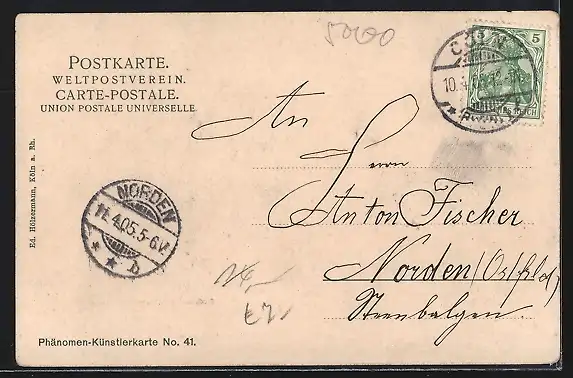 5000
POSTKARTE.
WELTPOSTVEREIN.
CARTE-POSTALE.
UNION POSTALE UNIVERSELLE.
CÖLN
10.4.
5
REICH
An
Herrn
Anton Fischer
Norden (Ostfrld)
Steenbalgen.
NORDEN
11.4.05.5-6V.
* * b
Ed. Hölzermann, Köln a. Rh.
Phänomen-Künstlerkarte No. 41.